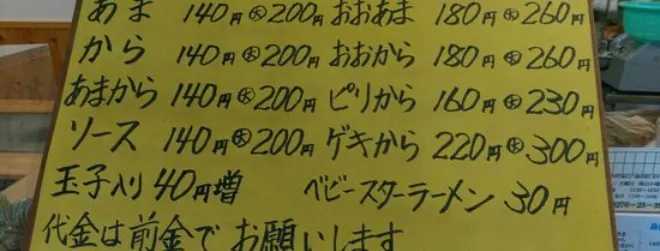 あま 140円 大 200円 おおあま 180円 大 260円
から 140円 大 200円 おおから 180円 大 260円
あまから 140円 大 200円 ピリから 160円 大 230円
ソース 140円 大 200円 ゲキから 220円 大 300円
玉子入り 40円増 ベビースターラーメン 30円
代金は前金でお願いします